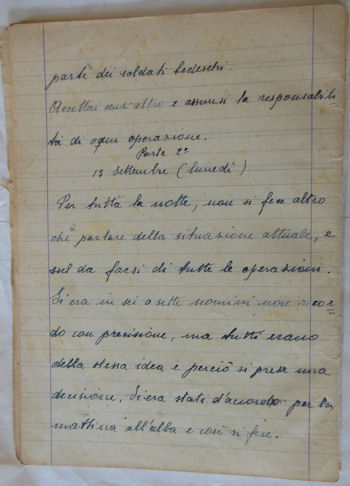 parte dei soldati tedeschi.
Accettai senz'altro e assunsi la responsabili-
tà di ogni operazione.
Parte 2ª
13 settembre (lunedì)
Per tutta la notte, non si fece altro
che parlare della situazione attuale, e
sul da farsi di tutte le operazioni.
Si era in sei o sette uomini non ricor=
do con precisione, ma tutti erano
della stessa idea e perciò si prese una
decisione. Si era stati d'accordo per la
mattina all'alba e così si fece.